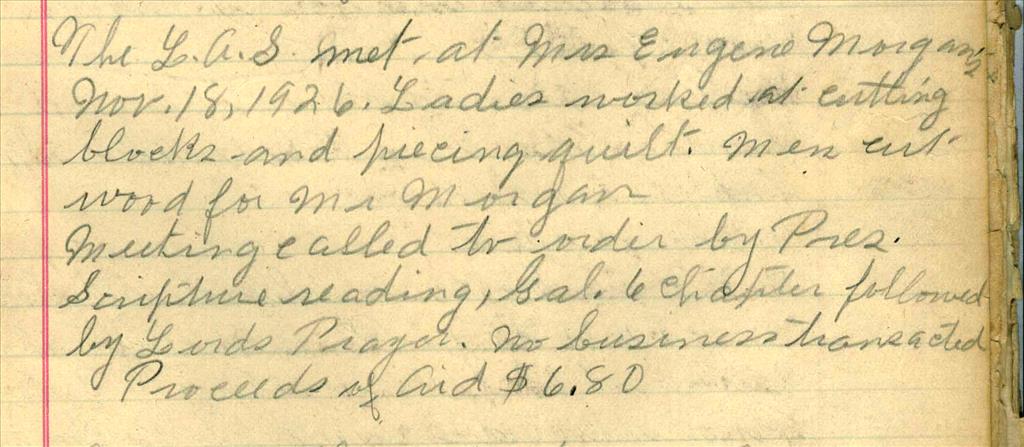 The L.A.S. met at Mrs Eugene Morgan's
Nov. 18, 1926. Ladies worked at cutting
blocks and piecing quilt. Men cut
wood for Mr Morgan
Meeting called to order by Pres.
Scripture reading, Gal. 6 chapter followed
by Lords Prayer. No business transacted
Proceeds of Aid $6.80